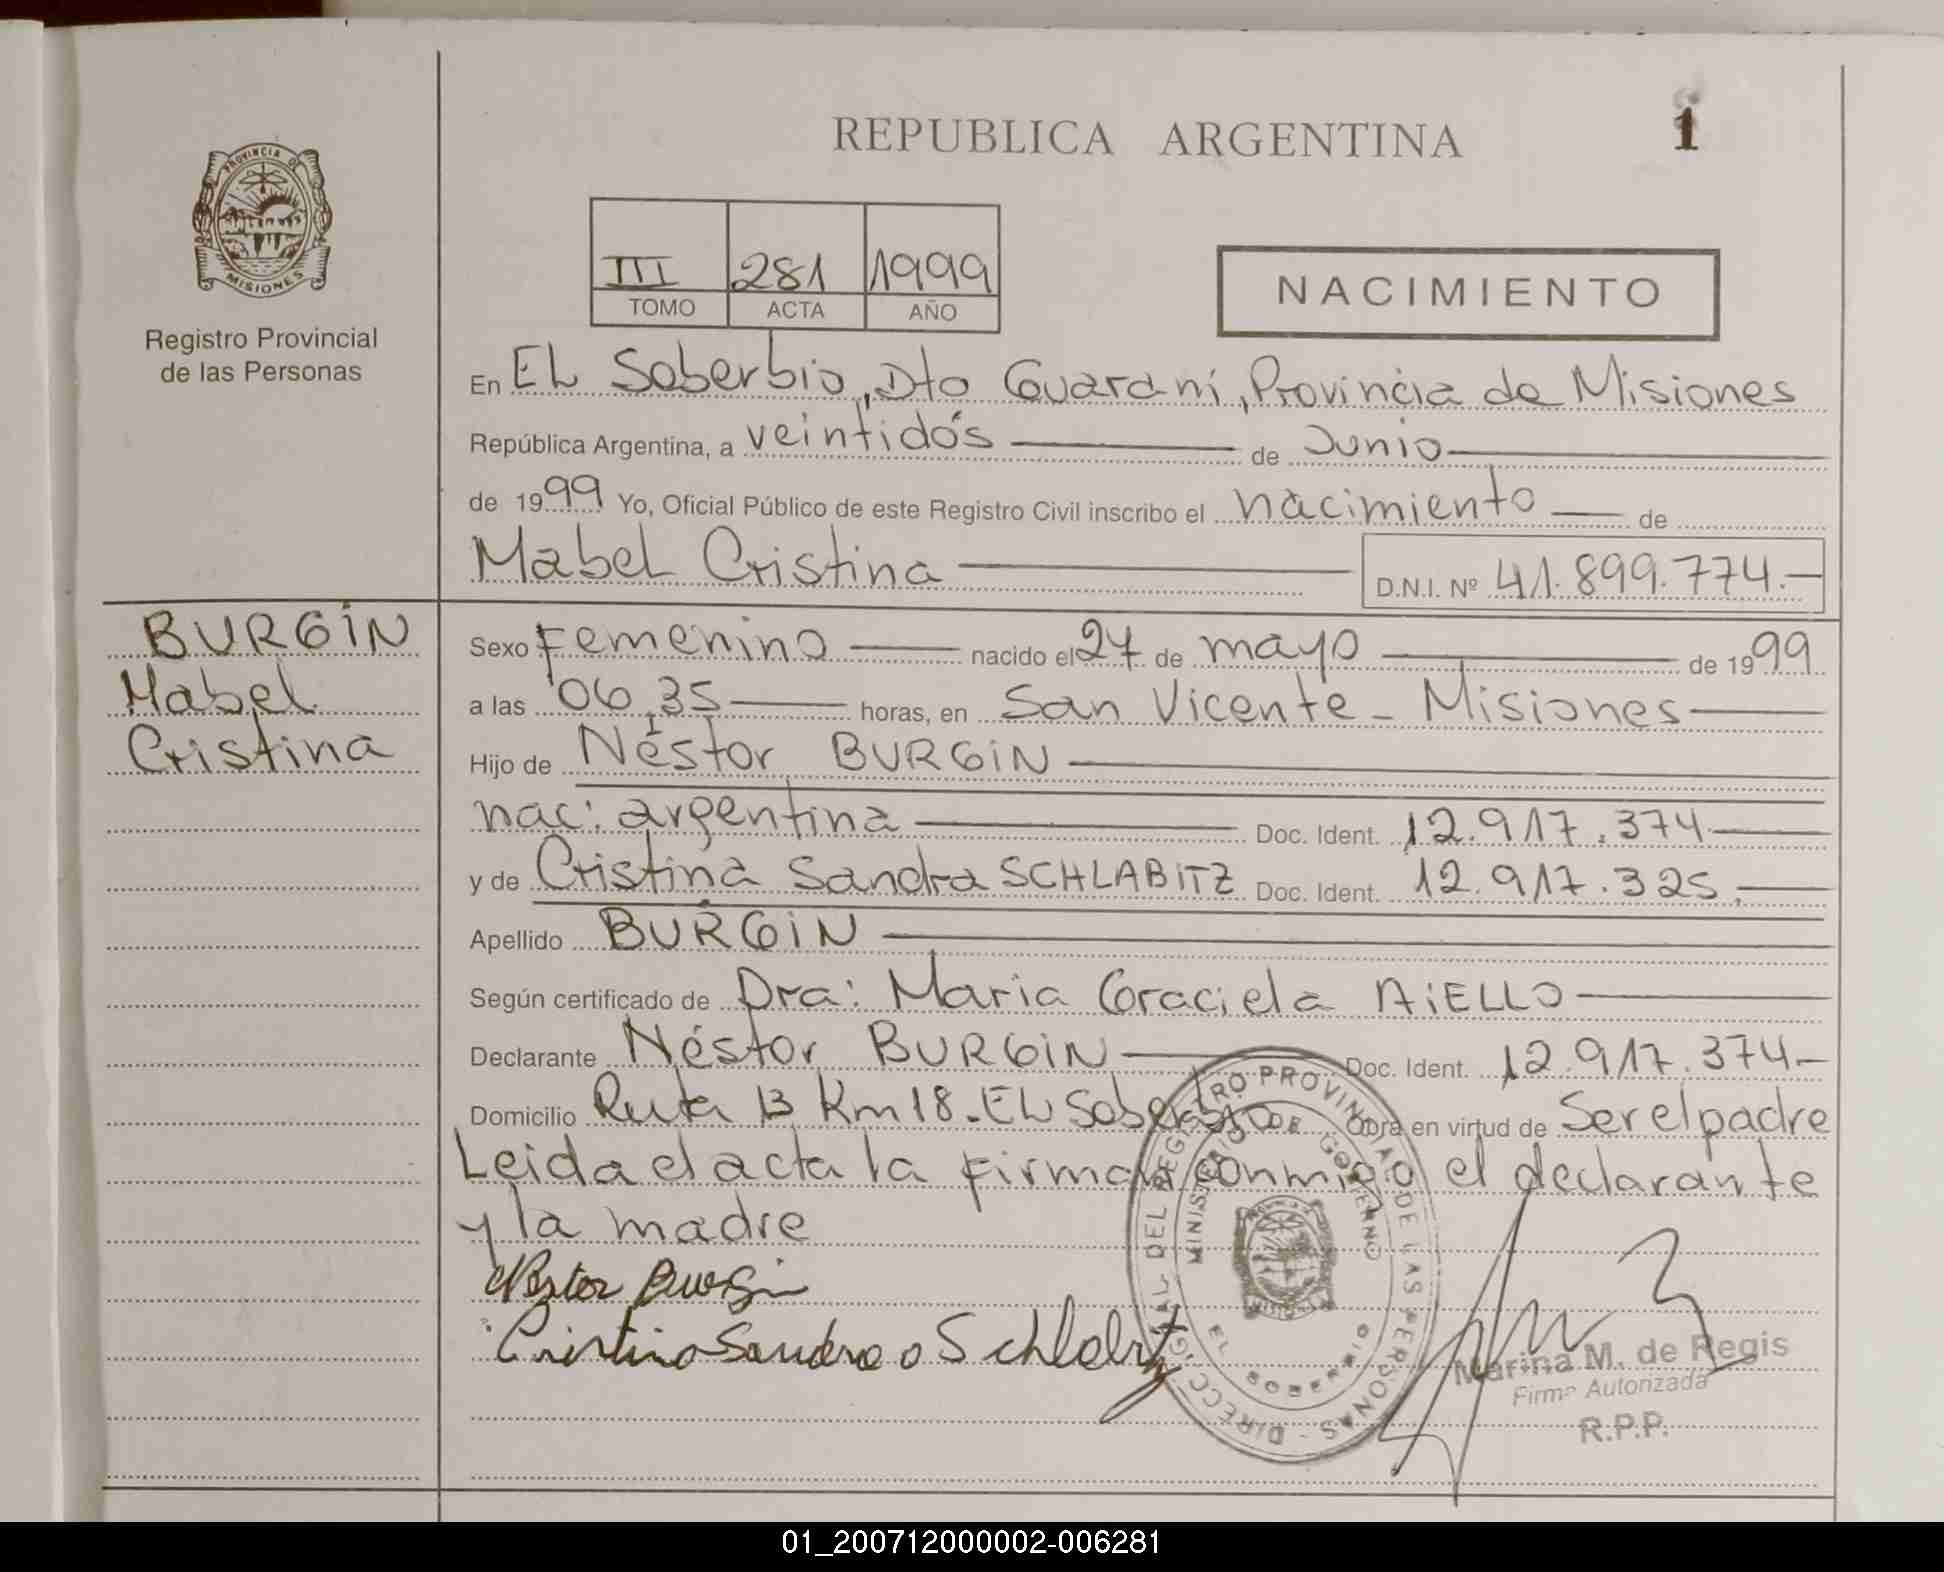 REPUBLICA ARGENTINA
1
PROVINCIA DE
MISIONES
Registro Provincial
de las Personas
III 281 1999
TOMO ACTA AÑO
NACIMIENTO
En EL Soberbio, Dto Guaraní, Provincia de Misiones
República Argentina, a veintidós de Junio
de 1999 Yo, Oficial Público de este Registro Civil inscribo el nacimiento de
Mabel Cristina D.N.I. Nº 41.899.774.-
BURGiN
Mabel
Cristina
Sexo Femenino nacido el 27 de mayo de 1999
a las 06,35 horas, en San Vicente - Misiones
Hijo de Néstor BURGiN
nac: argentina Doc. Ident. 12.917.374
y de Cristina Sandra SCHLABiTZ Doc. Ident. 12.917.325.
Apellido BURGiN
Según certificado de Dra: Maria Graciela AiELLO
Declarante Néstor BURGiN Doc. Ident. 12.917.374-
Domicilio Ruta 13 Km 18. EL Soberbio Obra en virtud de Ser el padre
Leida el acta la firman conmigo el declarante
y la madre
Nestor Burgin
Cristina Sandra Schlabitz
DIRECC. GRAL DEL REGISTRO PROVINCIAL DE LAS PERSONAS -
MINISTERIO DE GOBIERNO
EL SOBERBIO
Marina M. de Regis
Firma Autorizada
R.P.P.
01_200712000002-006281